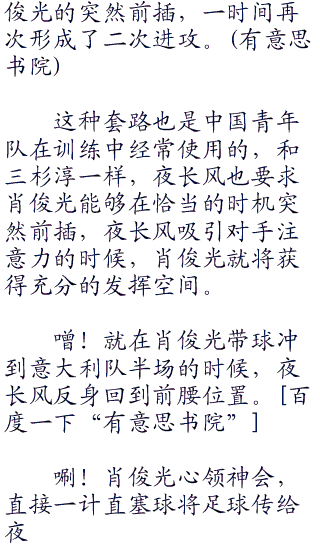 俊光的突然前插，一时间再
次形成了二次进攻。(有意思
书院)
这种套路也是中国青年
队在训练中经常使用的，和
三杉淳一样，夜长风也要求
肖俊光能够在恰当的时机突
然前插，夜长风吸引对手注
意力的时候，肖俊光就将获
得充分的发挥空间。
噌！就在肖俊光带球冲
到意大利队半场的时候，夜
长风反身回到前腰位置。[百
度一下“有意思书院”]
唰！肖俊光心领神会，
直接一计直塞球将足球传给
夜